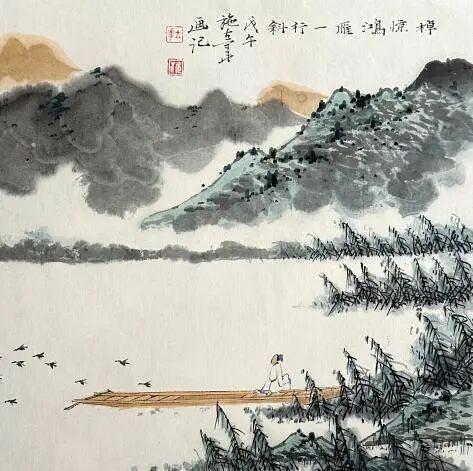 棹惊鸿雁一行斜
戊午
施
画记